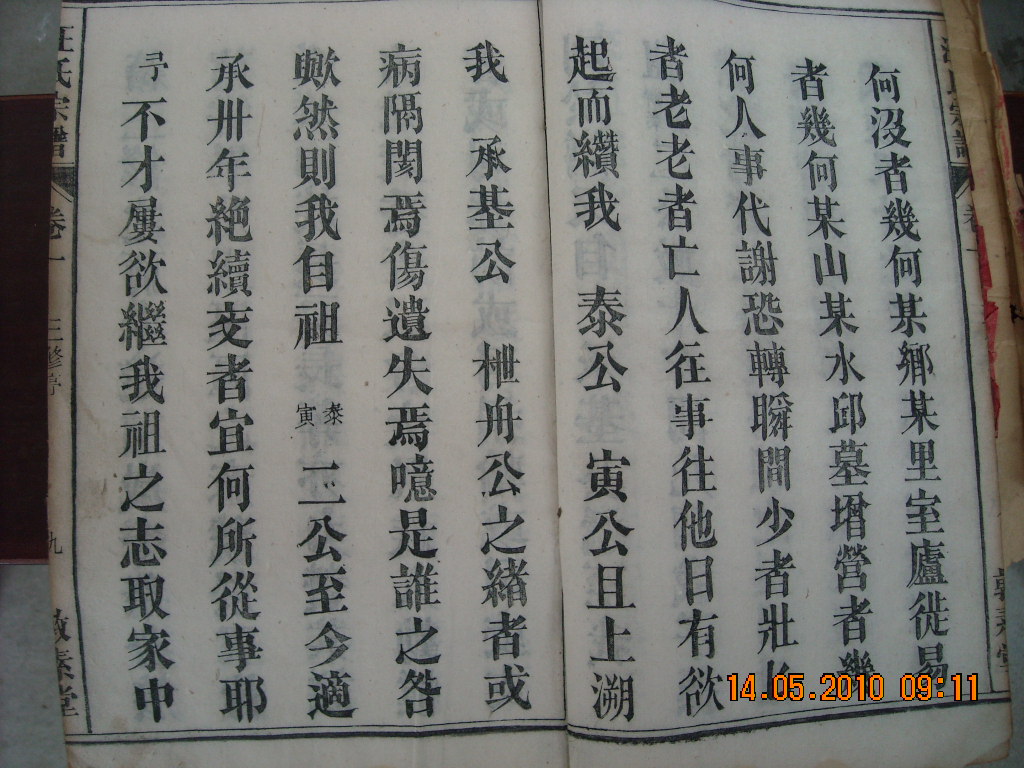 何沒者幾何某鄉某里室廬徙易
者幾何某山某水邱墓增營者幾
何人事代謝恐轉瞬間少者壯
者老老者亡人往事往他日有欲
起而纘我 泰公 寅公且上溯
我 承基公 枻舟公之緒者或
病隔閡焉傷遺失焉噫是誰之咎
歟然則我自祖 泰寅 二公至今適
承卅年絕續交者宜何所從事耶
不才屢欲繼我祖之志取家中
汪氏宗譜 卷一 三修序 九 敬素堂
14.05.2010 09:11